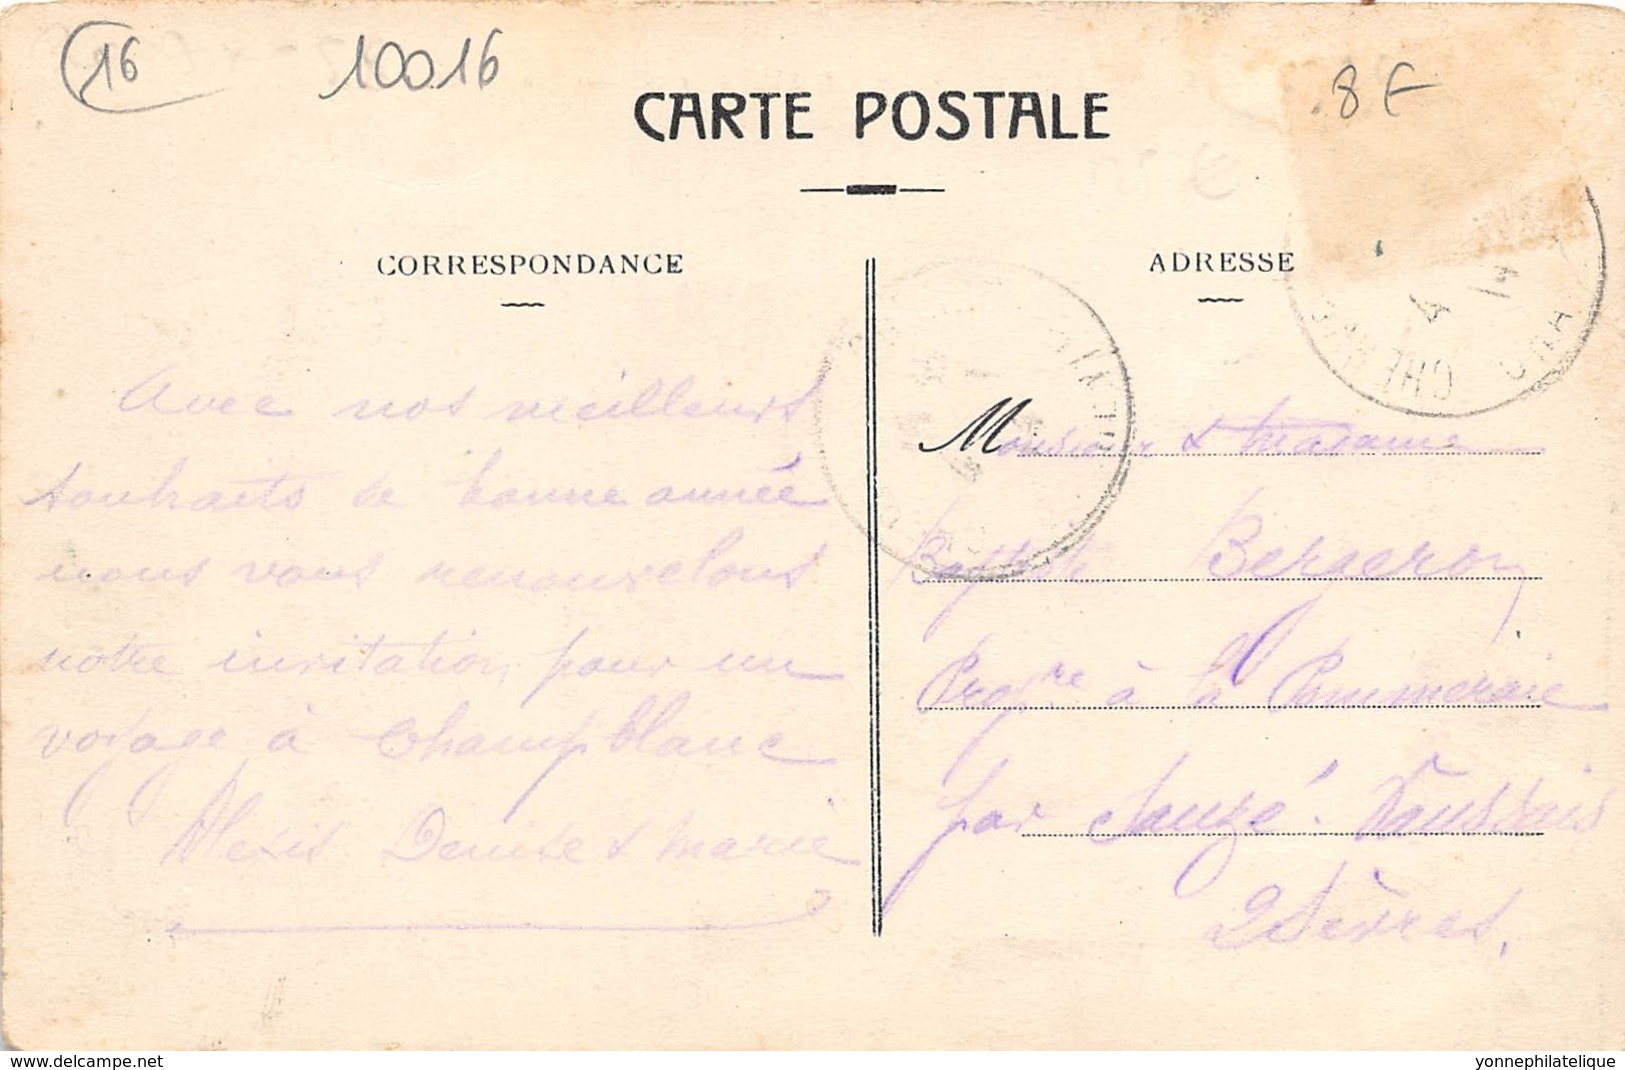 16
10016
8 F
CARTE POSTALE
CORRESPONDANCE
ADRESSE
4
14
CHE
Avec nos meilleurs
souhaits de bonne année
nous vous renouvelons
notre invitation pour un
voyage à Champblanc
Alexis Denise & Marie
Monsieur & Madame
Baptiste Bergeron
Propre à la Pommeraie
par Sauzé Vaussais
2 Sèvres.
www.delcampe.net
yonnephilatelique